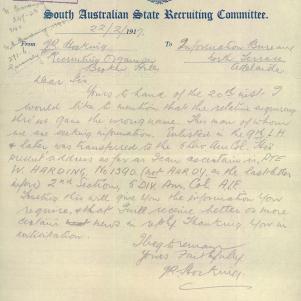 South Australian State Recruiting Committee.
22/2/1917
From To
Information Bureau
Recruiting Organiser
Broken Hill Adelaide
Dear Sir
Yours to hand of the 20th inst. I
would like to mention that the relative inquiring
here gave the wrong name. This man of whom
we are seeking information. Enlisted in the 9th L.H
& later was transferred to the Am Col. His
present address as far as I can ascertain is, PTE
W. HARDING, No 1390. (not HARDY). as the last letter
2nd Section, 5 DIV Am. Col. A.I.F.
Trusting this will give you the information you
require, & that I will receive better or more
certain news in reply Thanking You in
anticipation.
I beg to remain
Yours Faithfully